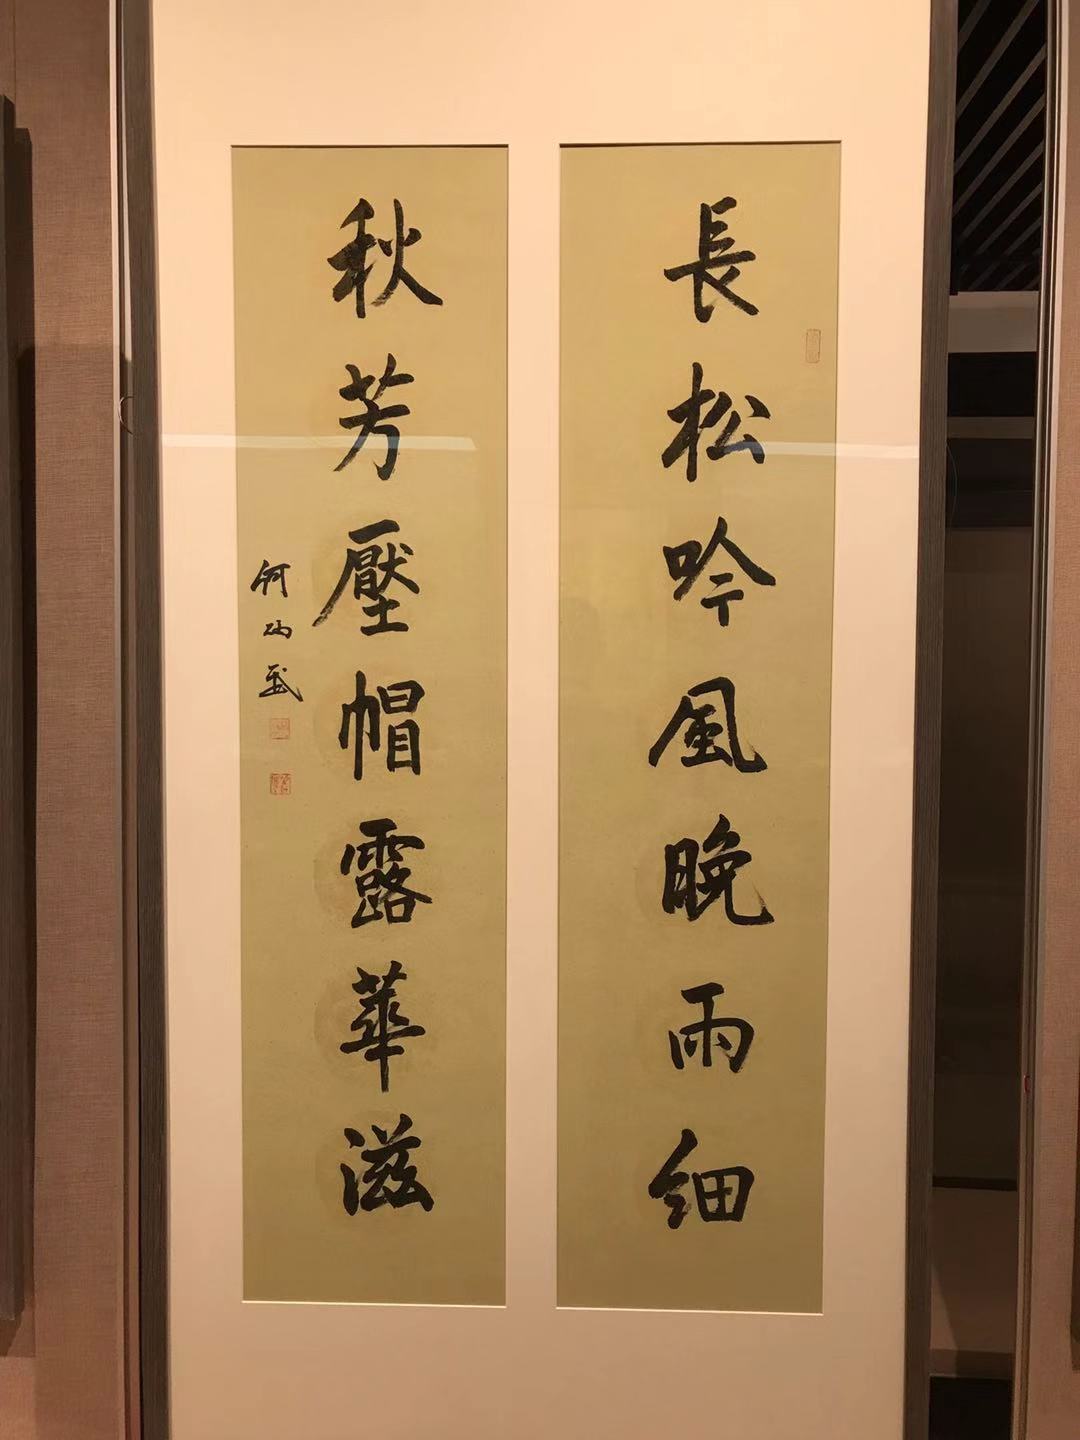 長松吟風晚雨細
秋芳壓帽露華滋
何炳武